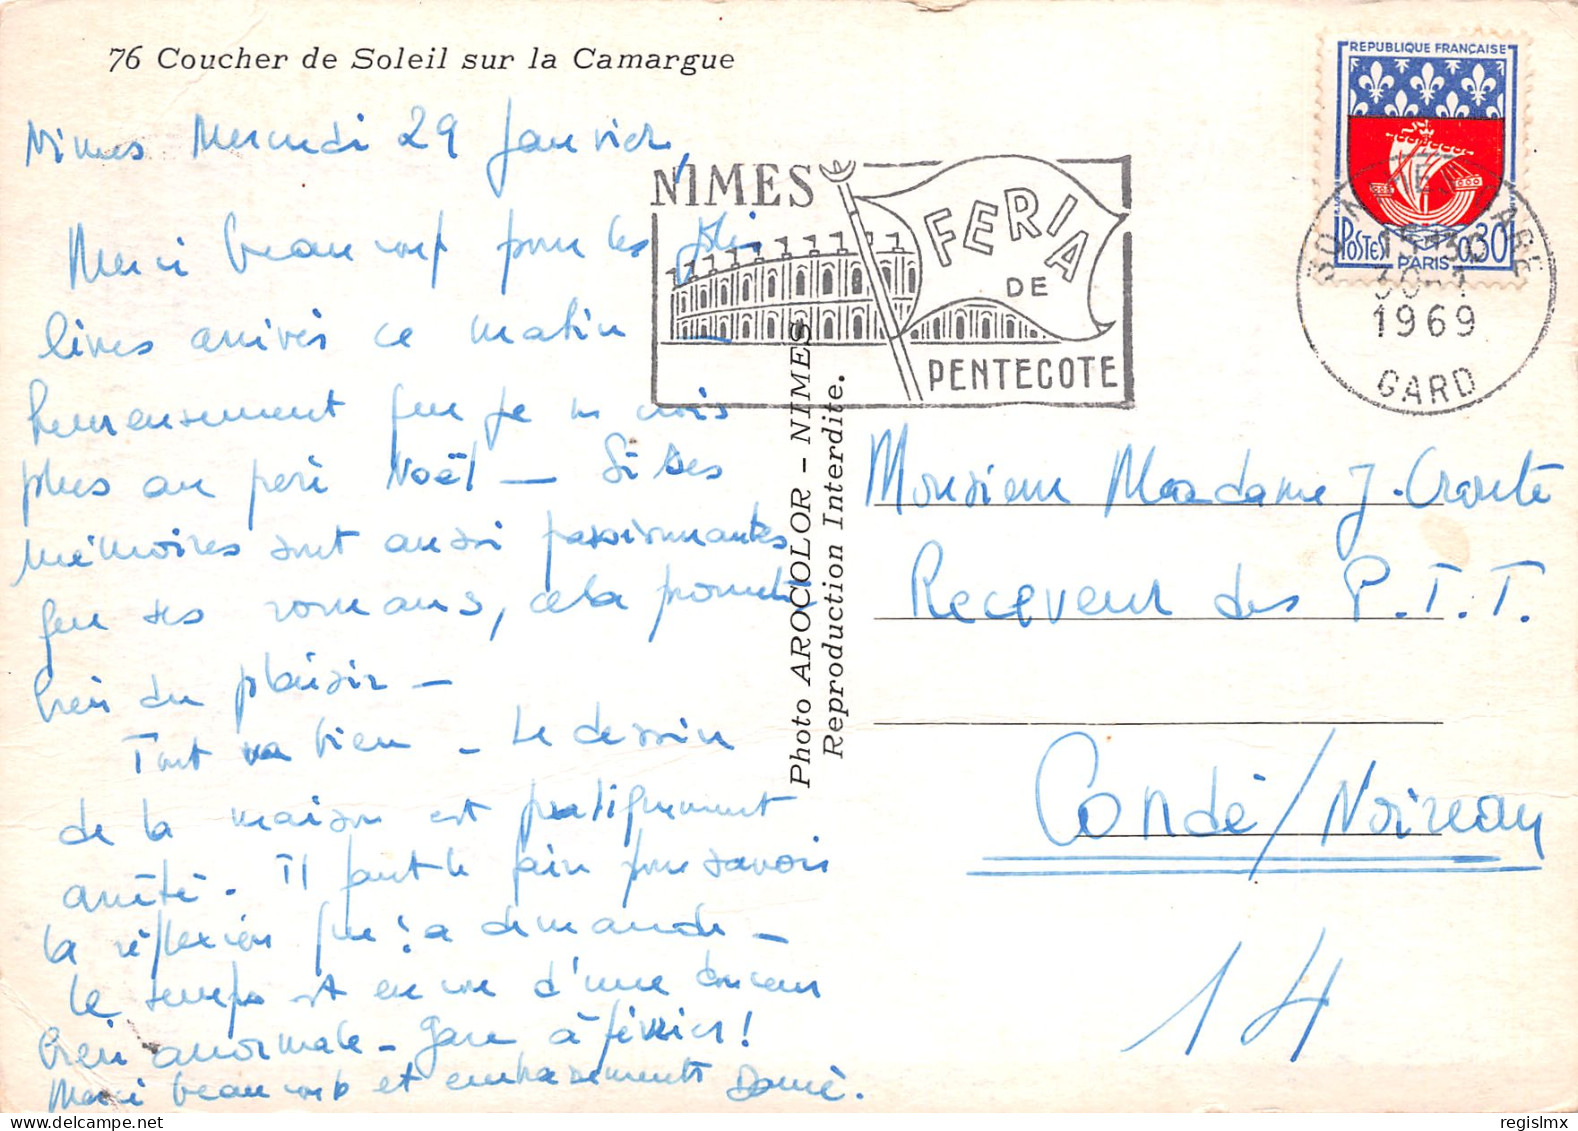 76 Coucher de Soleil sur la Camargue
Nîmes Mercredi 29 Janvier,
Merci beaucoup pour les jolis
livres arrivés ce matin —
heureusement que je ne crois
plus au père Noël — Si ses
mémoires sont aussi passionnantes
que ses romans, cela promet
bien du plaisir —
Tout va bien — Le dessin
de la maison est pratiquement
arrêté. Il faut le faire pour savoir
la réflexion que ça demande —
le temps est encore d'une douceur
bien anormale — Gare à février!
Merci beaucoup et embrassements
NIMES
FERIA
DE
PENTECOTE
Photo AROCOLOR - NIMES
Reproduction Interdite.
REPUBLIQUE FRANÇAISE
POSTES
PARIS
0.30
30-1
1969
GARD
Monsieur Madame J.
Receveur des P.T.T.
Condé/Noireau
14
regislmx